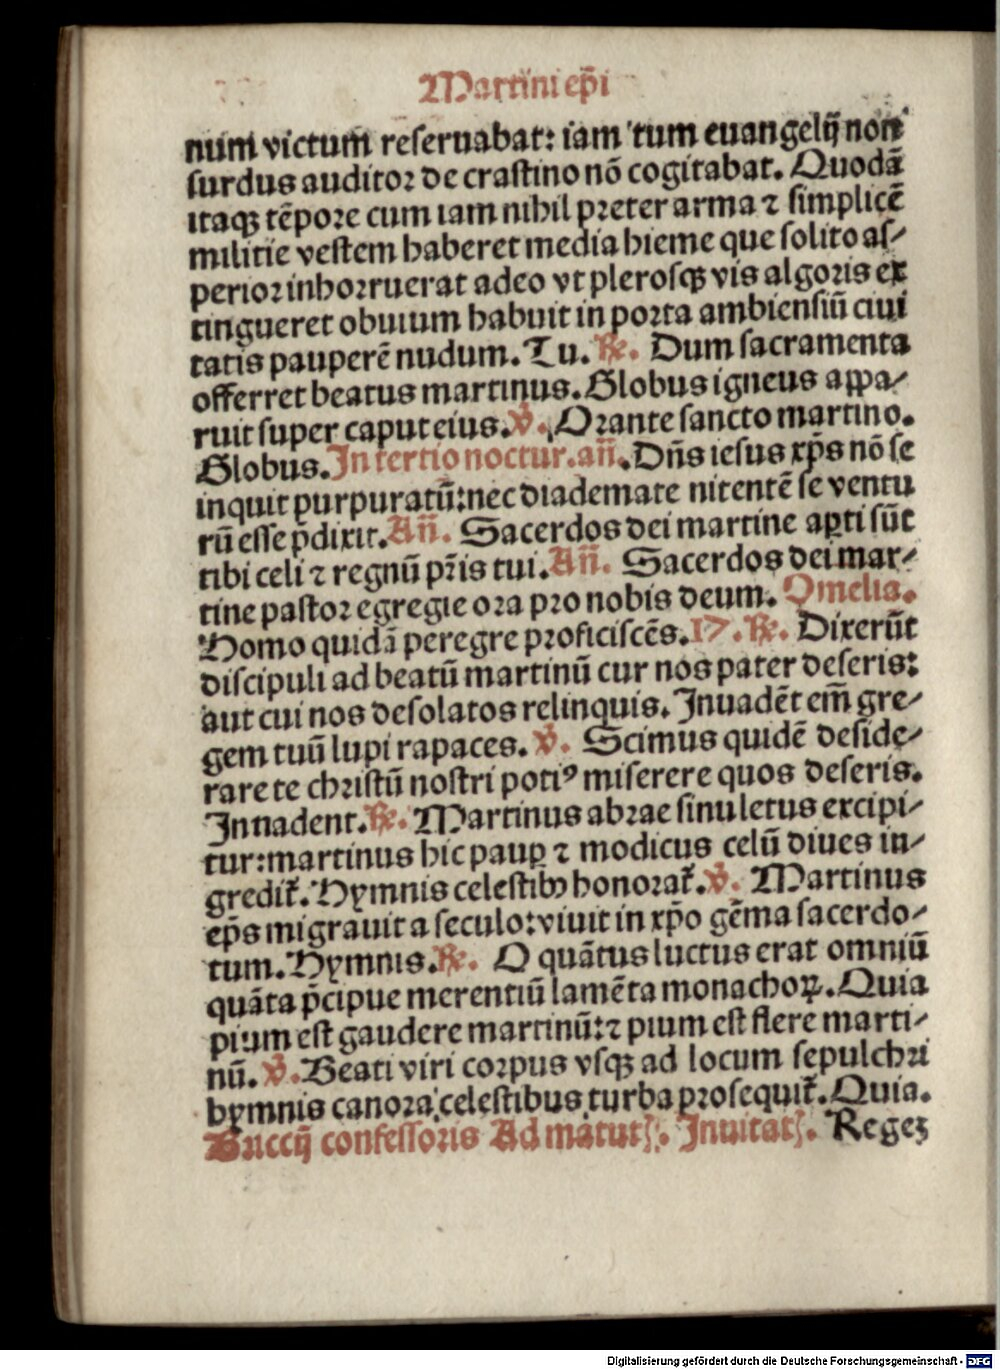 Martini ep̄i
num victum reseruabat: iam tum euangelij non
surdus auditor de crastino nō cogitabat. Quodā
itaqꝫ tēpore cum iam nihil preter arma ⁊ simplicē
militie vestem haberet media hieme que solito as⸗
perior inhorruerat adeo vt plerosqꝫ vis algoris ex
tingueret obuium habuit in porta ambiensiū ciui
tatis pauperē nudum. Tu. ℟. Dum sacramenta
offerret beatus martinus. Globus igneus appa⸗
ruit super caput eius. ℣. Orante sancto martino.
Globus. In tertio noctur. an̄. Dn̄s iesus xp̄s nō se
inquit purpuratū: nec diademate nitentē se ventu
rū esse p̄dixit. An̄. Sacerdos dei martine aꝑti sūt
tibi celi ⁊ regnū pr̄is tui. An̄. Sacerdos dei mar⸗
tine pastor egregie ora pro nobis deum. Omelia.
Homo quidā peregre proficiscēs. 17. ℟. Dixerūt
discipuli ad beatū martinū cur nos pater deseris:
aut cui nos desolatos relinquis. Inuadēt em̄ gre⸗
gem tuū lupi rapaces. ℣. Scimus quidē deside⸗
rare te christū nostri potiꝰ miserere quos deseris.
Innadent. ℟. Martinus abrae sinu letus excipi⸗
tur: martinus hic pauꝑ ⁊ modicus celū diues in⸗
gredit̄. Hymnis celestibꝫ honorat̄. ℣. Martinus
ep̄s migrauit a seculo: viuit in xp̄o gēma sacerdo⸗
tum. Hymnis. ℟. O quātus luctus erat omniū
quāta p̄cipue merentiū lamēta monachoꝝ. Quia
pium est gaudere martinū: ⁊ pium est flere marti⸗
nū. ℣. Beati viri corpus vsqꝫ ad locum sepulchri
hymnis canora celestibus turba prosequit̄. Quia.
Briccij confessoris Ad matutꝭ. Inuitatꝭ. Regeꝫ
Digitalisierung gefördert durch die Deutsche Forschungsgemeinschaft - DFG